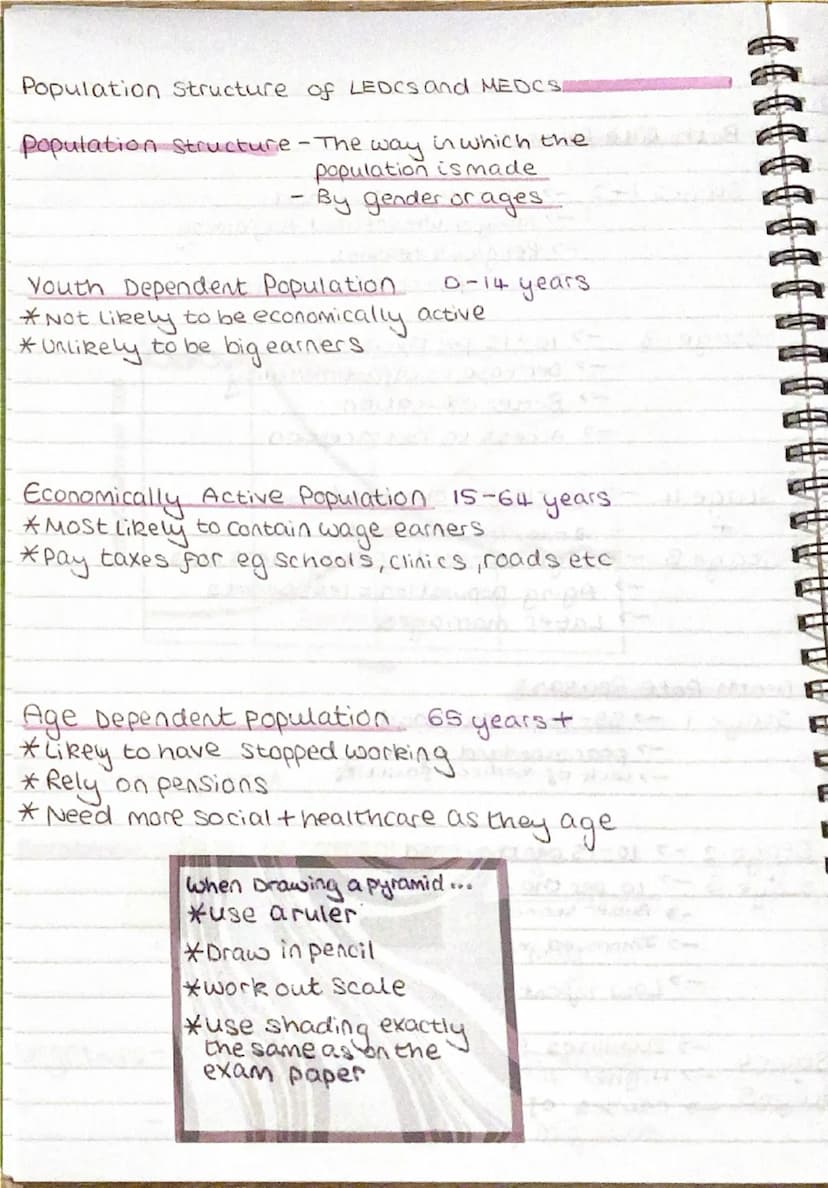 Population Structure of LEDCs and MEDCs
Population Structure - The way in which the
population is made
- By gender or ages
Youth Dependent Population 0-14 years
*Not likely to be economically active
*Unlikely to be big earners
Economically Active Population 15-64 years
*Most likely to contain wage earners
*Pay taxes for eg schools, clinics, roads etc
Age Dependent Population 65 years+
*Likely to have stopped working
*Rely on pensions
*Need more social + healthcare as they age
When Drawing a pyramid...
*Use a ruler
*Draw in pencil
*Work out scale
*Use shading exactly
the same as on the
exam paper